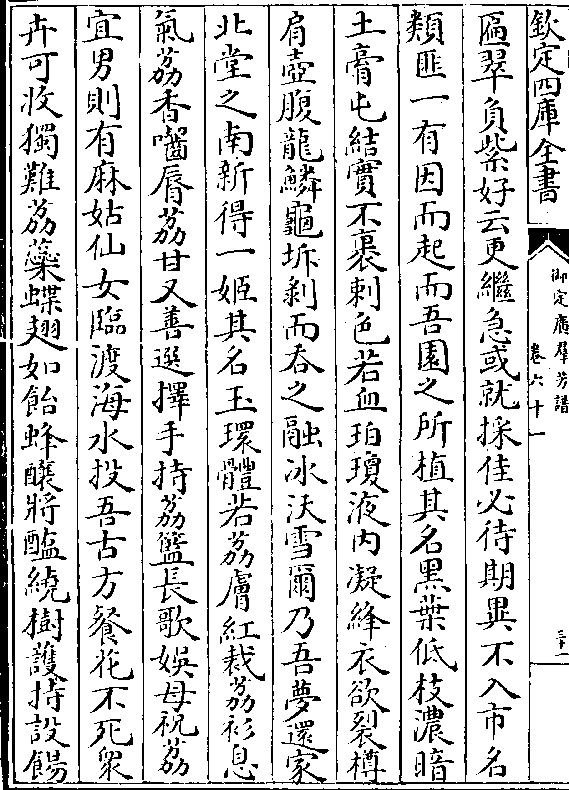 欽定四庫全書
御定廣羣芳譜
卷六十一
三十
匾翠負紫好云更繼急或就採佳必待期異不入市名
類匪一有因而起而吾園之所植其名黑葉低枝濃暗
土膏乇結實不裹刺色若血珀瓊液内凝絳衣欲裂樽
肩壺腹龍鱗龜坼剥而吞之融冰沃雪爾乃吾夢還家
北堂之南新得一姬其名玉環體若荔膚紅裁荔衫息
氣荔香嚙脣荔甘又善選擇手持荔籃長歌娛母祝荔
宜男則有麻姑仙女臨渡海水投吾古方餐花不死衆
卉可收獨難荔蘂蝶翅如飴蜂釀將醢繞樹護持設餳